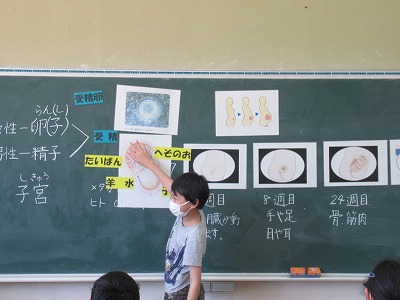 受精卵
らん(し)
性－卵(子)
性－精子
しきゅう
子宮
受精
へそのお
たいばん
羊水
メダ
ヒト
週目
臓が動
出す。
8週目
手や足
目や耳
24週目
骨、筋肉